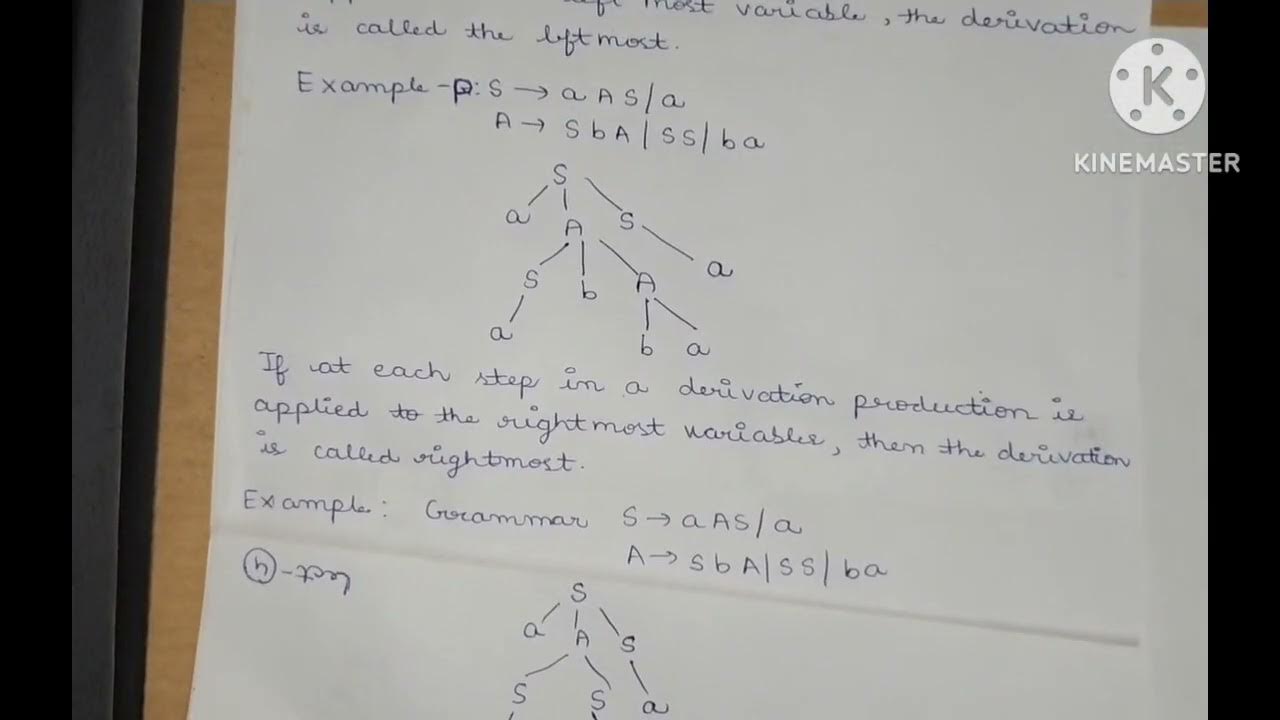 left most variable, the derivation
is called the leftmost.
Example - P: S → a A S / a
A → S b A | S S | b a
K
KINEMASTER
S
a A S
S b A a
a b a
If at each step in a derivation production is
applied to the rightmost variable, then the derivation
is called rightmost.
Example: Grammar S → a A S / a
A → S b A | S S | b a
Lect-4
S
a A S
S S a